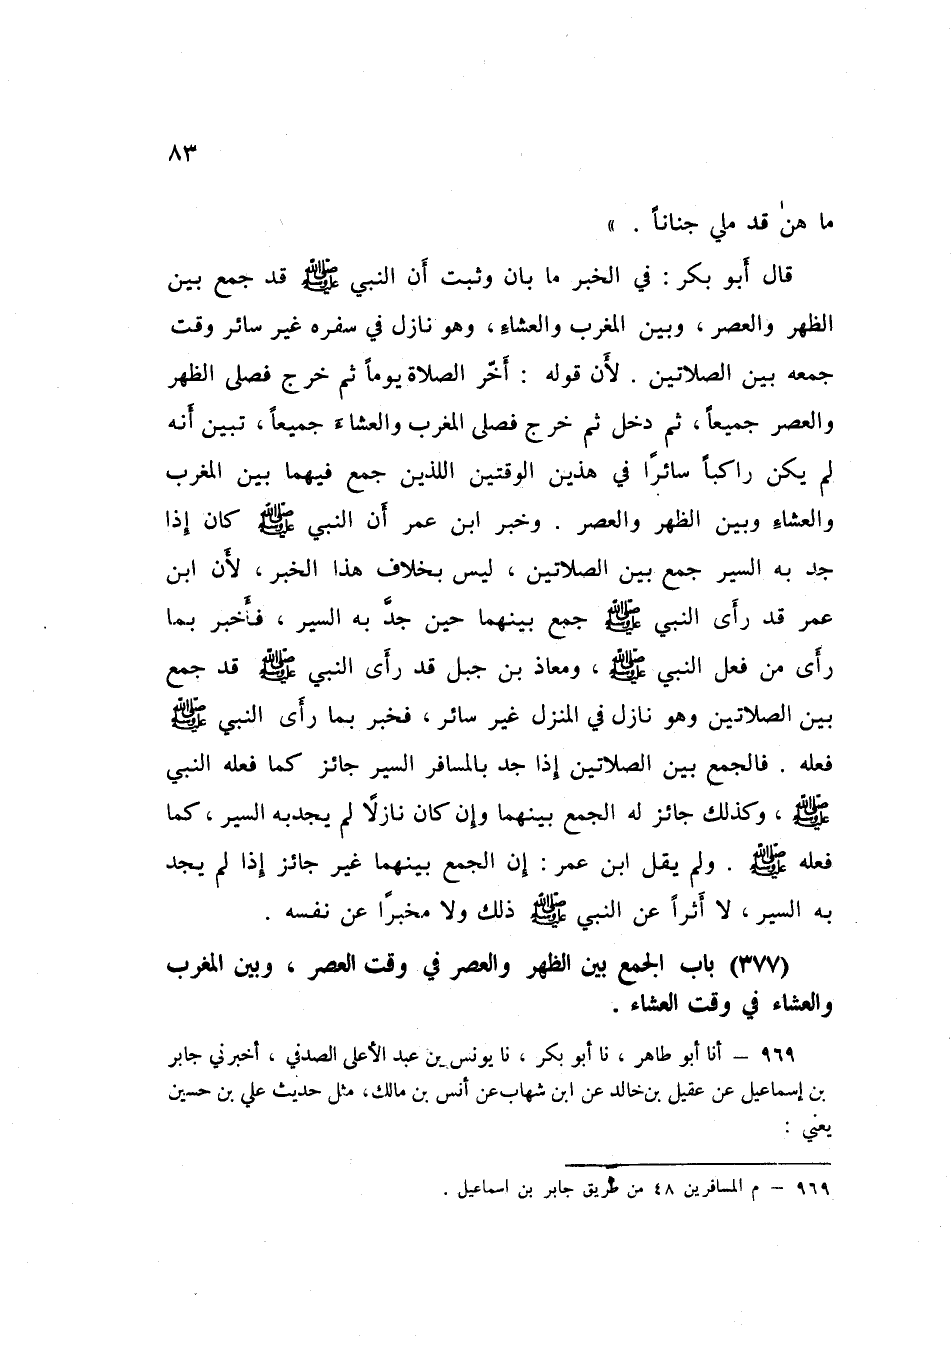 ٨٣
ما هنٰ قد ملي جناناً . »
قال أبو بكر : في الخبر ما بان وثبت أن النبي ﷺ قد جمع بين
الظهر والعصر ، وبين المغرب والعشاء ، وهو نازل في سفره غير سائر وقت
جمعه بين الصلاتين . لأن قوله : أخّر الصلاة يوماً ثم خرج فصلى الظهر
والعصر جميعاً ، ثم دخل ثم خرج فصلى المغرب والعشاء جميعاً ، تبين أنه
لم يكن راكباً سائرًا في هذين الوقتين اللذين جمع فيهما بين المغرب
والعشاء وبين الظهر والعصر . وخبر ابن عمر أن النبي ﷺ كان إذا
جد به السير جمع بين الصلاتين ، ليس بخلاف هذا الخبر ، لأن ابن
عمر قد رأى النبي ﷺ جمع بينهما حين جدَّ به السير ، فأخبر بما
رأى من فعل النبي ﷺ ، ومعاذ بن جبل قد رأى النبي ﷺ قد جمع
بين الصلاتين وهو نازل في المنزل غير سائر ، فخبر بما رأى النبي ﷺ
فعله . فالجمع بين الصلاتين إذا جد بالمسافر السير جائز كما فعله النبي
ﷺ ، وكذلك جائز له الجمع بينهما وإن كان نازلًا لم يجد به السير ، كما
فعله ﷺ . ولم يقل ابن عمر : إن الجمع بينهما غير جائز إذا لم يجد
به السير ، لا أثراً عن النبي ﷺ ذلك ولا مخبرًا عن نفسه .
(٣٧٧) باب الجمع بين الظهر والعصر في وقت العصر ، وبين المغرب
والعشاء في وقت العشاء .
٩٦٩ – أنا أبو طاهر ، نا أبو بكر ، نا يونس بن عبد الأعلى الصدفي ، أخبرني جابر
بن إسماعيل عن عقيل بن خالد عن ابن شهاب عن أنس بن مالك ، مثل حديث علي بن حسين
يعني :
٩٦٩ – م المسافرين ٤٨ من طريق جابر بن اسماعيل .